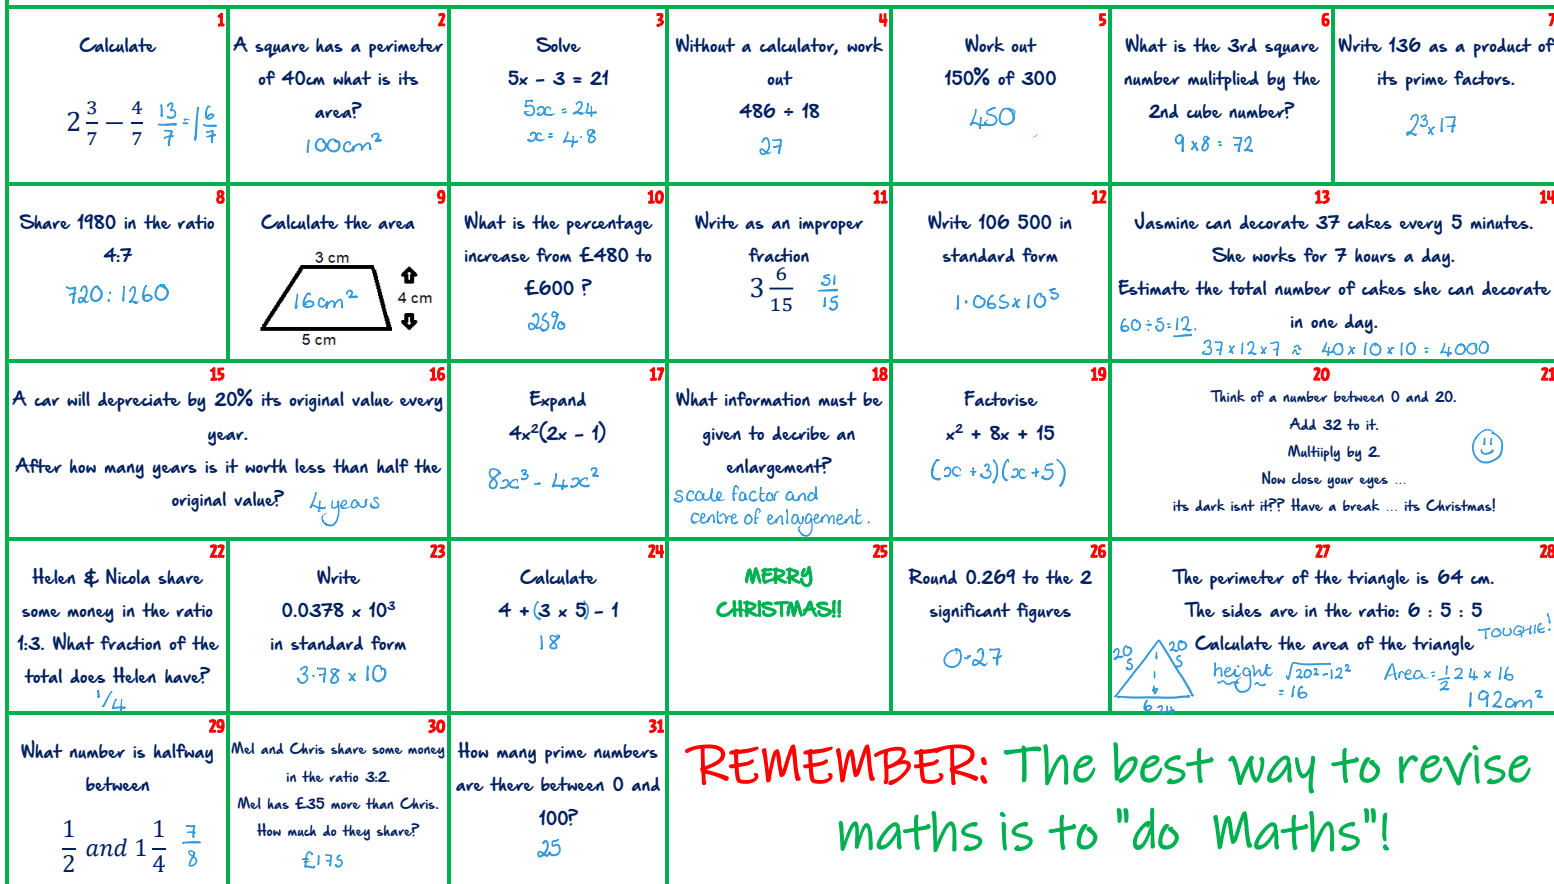 1
Calculate
2 3/7 − 4/7 13/7 = 1 6/7
2
A square has a perimeter
of 40cm what is its
area?
100cm²
3
Solve
5x - 3 = 21
5x = 24
x = 4.8
4
Without a calculator, work
out
486 ÷ 18
27
5
Work out
150% of 300
450
6
What is the 3rd square
number mulitplied by the
2nd cube number?
9 x 8 = 72
7
Write 136 as a product of
its prime factors.
2³ x 17
8
Share 1980 in the ratio
4:7
720 : 1260
9
Calculate the area
3 cm
16cm²
4 cm
5 cm
10
What is the percentage
increase from £480 to
£600 ?
25%
11
Write as an improper
fraction
3 6/15 51/15
12
Write 106 500 in
standard form
1.065 x 10⁵
13 14
Jasmine can decorate 37 cakes every 5 minutes.
She works for 7 hours a day.
Estimate the total number of cakes she can decorate
in one day.
60 ÷ 5 = 12.
37 x 12 x 7 ≈ 40 x 10 x 10 = 4000
15 16
A car will depreciate by 20% its original value every
year.
After how many years is it worth less than half the
original value? 4 years
17
Expand
4x²(2x - 1)
8x³ - 4x²
18
What information must be
given to decribe an
enlargement?
scale factor and
centre of enlargement.
19
Factorise
x² + 8x + 15
(x + 3)(x + 5)
20 21
Think of a number between 0 and 20.
Add 32 to it.
Multiiply by 2.
Now close your eyes ...
its dark isnt it?? Have a break ... its Christmas!
22
Helen & Nicola share
some money in the ratio
1:3. What fraction of the
total does Helen have?
1/4
23
Write
0.0378 x 10³
in standard form
3.78 x 10
24
Calculate
4 + (3 x 5) - 1
18
25
MERRY
CHRISTMAS!!
26
Round 0.269 to the 2
significant figures
0.27
27 28
The perimeter of the triangle is 64 cm.
The sides are in the ratio: 6 : 5 : 5
Calculate the area of the triangle TOUGHIE!
20 5 20 5
6 24
height √20²-12²
= 16
Area = 1/2 24 x 16
192cm²
29
What number is halfway
between
1/2 and 1 1/4 7/8
30
Mel and Chris share some money
in the ratio 3:2.
Mel has £35 more than Chris.
How much do they share?
£175
31
How many prime numbers
are there between 0 and
100?
25
REMEMBER: The best way to revise
maths is to "do Maths"!